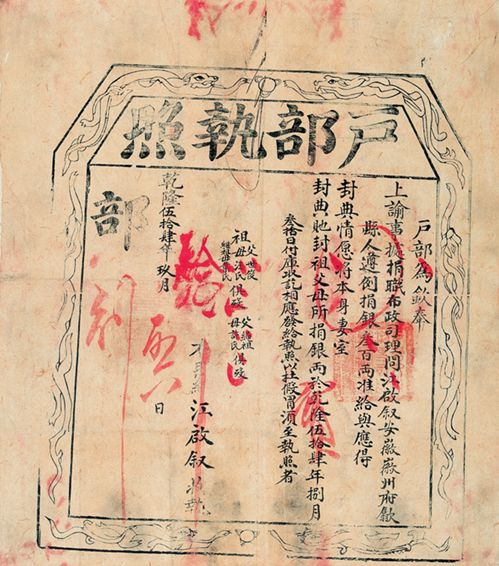 戶部執照
戶部為欽奉
上諭事據捐職布政司理問江啟叙安徽徽州府歙
縣人遵例捐銀叁百兩准給與應得
封典情愿將本身妻室
封典貤封祖父母所捐銀兩於乾隆伍拾肆年捌月
叁拾日付庫收訖相應發給執照以杜假冒須至執照者
祖父
母 氏 俱歿
父
母 氏 俱歿
江啟叙收執
乾隆伍拾肆年玖月 日
部